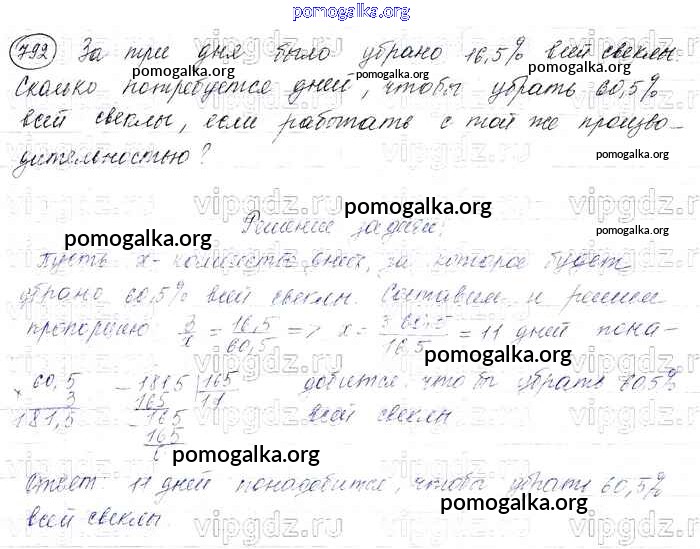 pomogalka.org
792 За три дня было убрано 16,5% всей свеклы.
pomogalka.org pomogalka.org pomogalka.org
Сколько потребуется дней, чтобы убрать 60,5%
всей свеклы, если работать с той же произво-
дительностью?
pomogalka.org
vipgdz.ru vipgdz.ru vipgdz.ru
pomogalka.org
Решение задачи:
pomogalka.org
Пусть x - количество дней, за которое будет
убрано 60,5% всей свеклы. Составим и решим
пропорцию: 3/x = 16,5/60,5 => x = 3·60,5/16,5 = 11 дней пона-
pomogalka.org
60,5 - 181,5 | 165 добится, чтобы убрать 60,5%
× 3 165 11 всей свеклы.
181,5 - 165
165
0
pomogalka.org
Ответ: 11 дней понадобится, чтобы убрать 60,5%
pomogalka.org
всей свеклы.
vipgdz.ru vipgdz.ru vipgdz.ru